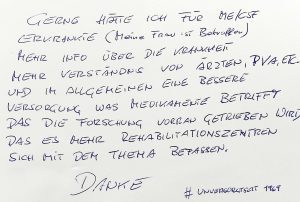 GERNE HÄTTE ICH FÜR ME/CSF
ERKRANKTE (Meine Frau ist Betroffen)
MEHR INFO ÜBER DIE KRANKHEIT
MEHR VERSTÄNDNIS VON ÄRZTEN, PVA, EK.
UND IM ALLGEMEINEN EINE BESSERE
VERSORGUNG WAS MEDIKAMENTE BETRIFFT
DAS DIE FORSCHUNG VORRAN GETRIEBEN WIRD
DAS ES MEHR REHABILITATIONSZENTREN
SICH MIT DEM THEMA BEFASSEN.
DANKE
#